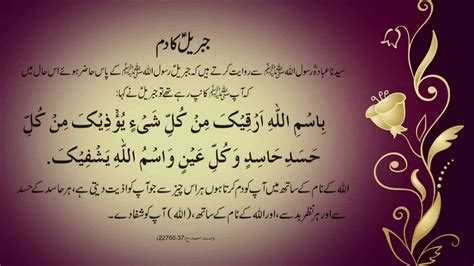 جبریلؑ کا دم
سیدنا عبادہؓ رسول اللہ ﷺ سے روایت کرتے ہیں کہ جبریلؑ رسول اللہ ﷺ کے پاس حاضر ہوئے اس حال میں
کہ آپ ﷺ کانپ رہے تھے تو جبریلؑ نے کہا:
بِاسْمِ اللهِ اَرْقِيْكَ مِنْ كُلِّ شَيْءٍ يُؤْذِيْكَ مِنْ كُلِّ
حَسَدِ حَاسِدٍ وَكُلِّ عَيْنٍ وَاسْمُ اللهِ يَشْفِيْكَ.
اللہ کے نام کے ساتھ میں آپ کو دم کرتا ہوں ہر اس چیز سے جو آپ کو اذیت دیتی ہے، ہر حاسد کے حسد
سے اور ہر نظر بد سے، اور اللہ کے نام کے ساتھ، (اللہ) آپ کو شفا دے۔
(مسند احمد، ج:37-22760)